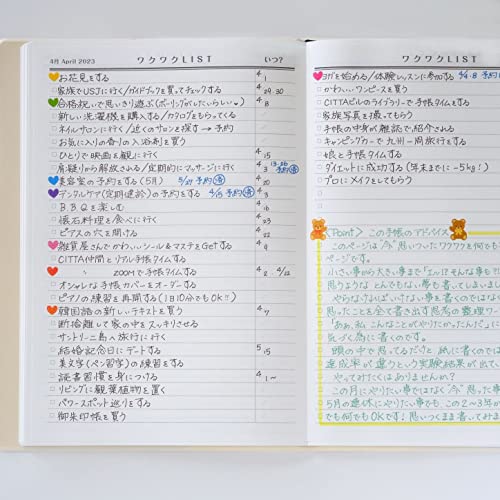 4月 April 2023 ワクワクLIST いつ?
お花見をする 4/
家族でUSJに行く/ガイドブックを買ってチェックする 4/29.30
合格祝いで思いきり遊ぶ(ボーリングがしたいらしい♥) 4/8
新しい洗濯機を購入する/カタログをもらってくる
ネイルサロンに行く/近くのサロンを探す→予約
お気に入りの香りの入浴剤を買う
ひとりで映画を観に行く 4/
肩凝りから解放される/定期的にマッサージに行く 4/3 13.26 予約済
美容室の予約をする(5月) 5/27 予約済 4/20
デンタルケア(定期健診)の予約をする 4/15 予約済 4/
B.B.Qを楽しむ
懐石料理を食べに行く
ピアスの穴を開ける
雑貨屋さんでかわいいシール&マステをGetする 4/9
CITTA仲間とリアル手帳タイムする
〃 ZOOMで手帳タイムする 4/2 4/12
オシャレな手帳カバーをオーダーする
ピアノの練習を再開する(1日10分でもOK!!)
韓国語の新しいテキストを買う 4/7
断捨離して家の中をスッキリさせる
サントリーニ島へ旅行に行く
結婚記念日にデートする 5/15
美文字(ペン習字)の練習をする
読書習慣を身につける 4/1~
リビングに観葉植物を置く
パワースポット巡りをする
御朱印帳を買う
ワクワクLIST
ヨガを始める/体験レッスンに参加する 4/8 予約
かわいいワンピースを買う
CITTAビルのライブラリーで手帳タイムする
家族写真を撮ってもらう
手帳の中身が雑誌で紹介される
キャンピングカーで九州一周旅行をする
娘と手帳タイムする
ダイエットに成功する(年末までに-5kg!)
プロにメイクをしてもらう
〈Point〉この手帳のアドバイス
このページは"今"思いついたワクワクを何でも
ページです。
小さい事から大きい事まで「エ〜!?そんな事も?
思うようなとんでもない夢も書いてしまいまし
やらなければいけない事を書くのではなく、
思ったことを全て書き出す思考の整理ワー
「あぁ、私こんなことがやりたかったんだ」
気づく為に書きます。
頭の中で思ってるだけと紙に書くのでは
達成率が違うという実験結果が出て
やってみたくはありませんか?
この月にやりたい事ではなく"今"思った
5月の連休にやりたい事でも、この2〜3年か
でも何でもOKです!思いつくまま書いてみま